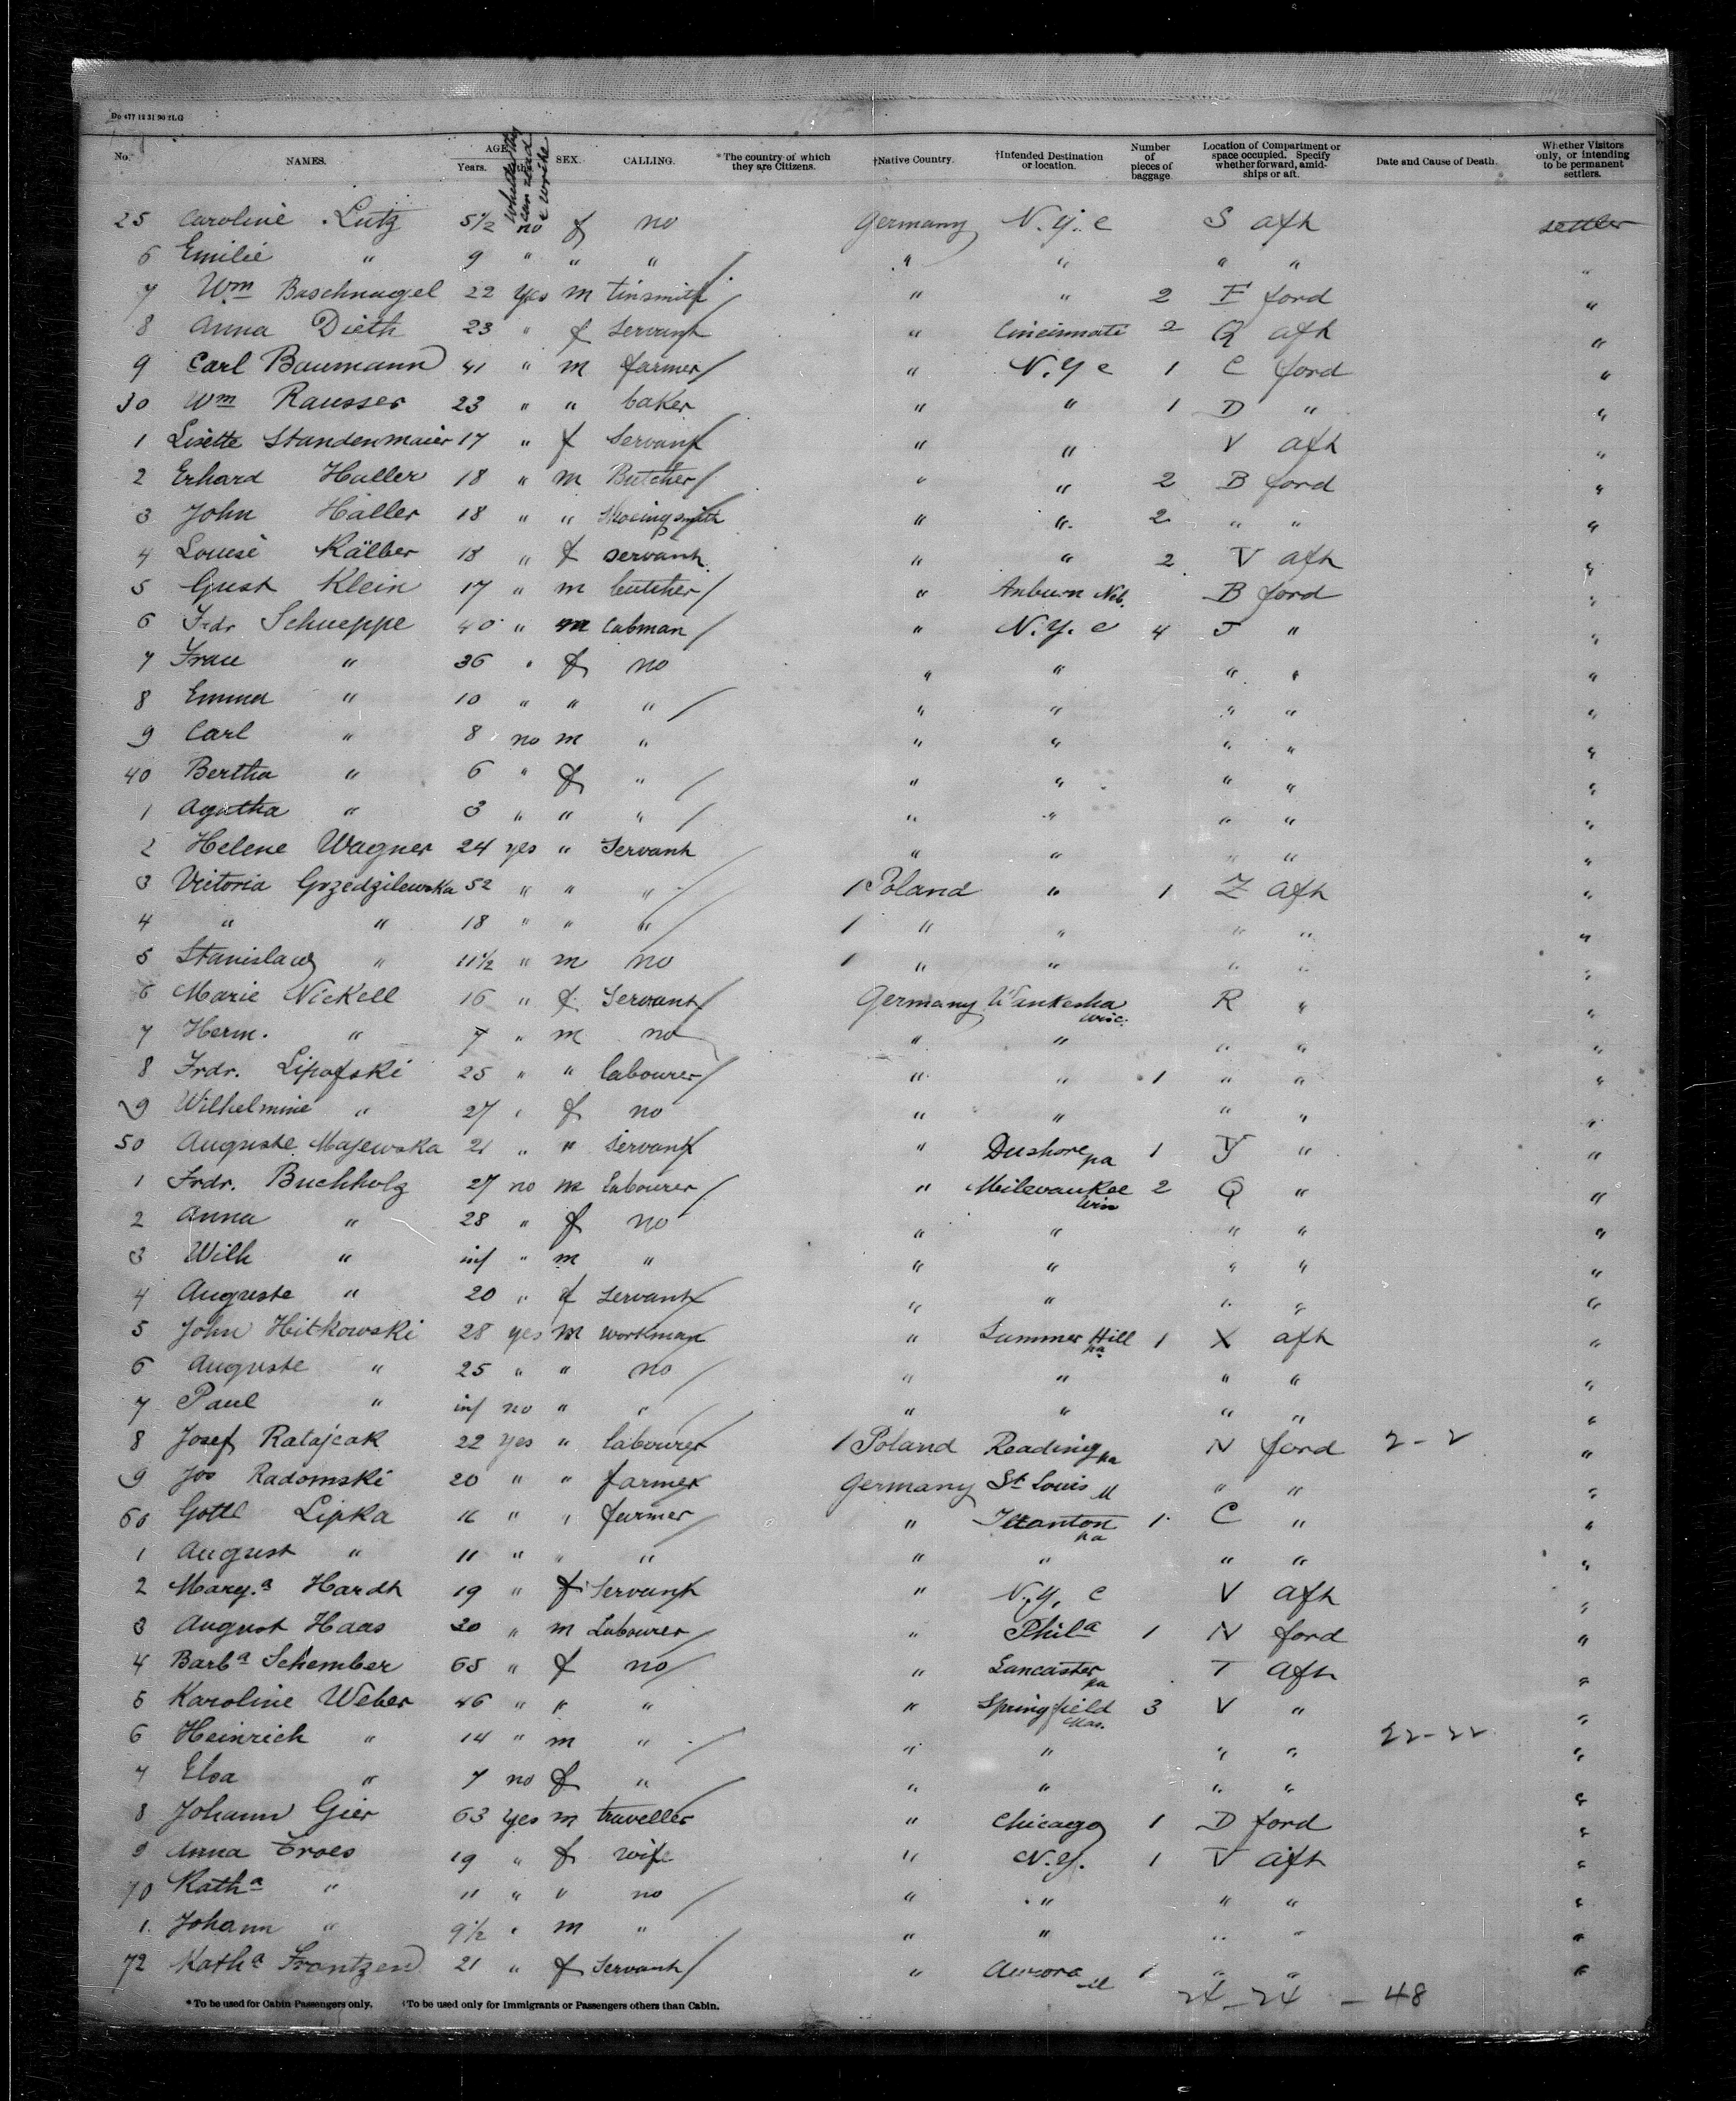 Do 477 12 31 90 2LG
No. NAMES. AGE. Years. Whether they can read & write SEX. CALLING. *The country of which they are Citizens. †Native Country. †Intended Destination or location. Number of pieces of baggage. Location of Compartment or space occupied. Specify whether forward, amidships or aft. Date and Cause of Death. Whether Visitors only, or intending to be permanent settlers.
25 Caroline Lutz 5½ no f no Germany N.Y.C S aft settler
6 Emilie " 9 " " " " " " " "
7 Wm Baschnagel 22 yes m tinsmith " " 2 F ford "
8 Anna Dieth 23 " f servant " Cincinnati 2 Q aft "
9 Carl Baumann 41 " m farmer " N.Y C 1 C ford "
30 Wm Rausser 23 " " baker " " 1 D " "
1 Lisette Standenmaier 17 " f Servant " " V aft "
2 Erhard Haller 18 " m Butcher " " 2 B ford "
3 John Haller 18 " " Shoeingsmith " " 2 " " "
4 Louise Kälber 18 " f servant " " 2 V aft "
5 Gust Klein 17 " m butcher " Auburn Neb. B ford "
6 Frdr Schueppe 40 " m Cabman " N.Y.C 4 J " "
7 Frau " 36 " f no " " " " "
8 Emma " 10 " " " " " " " "
9 Carl " 8 no m " " " " " "
40 Bertha " 6 " f " " " " " "
1 Agatha " 3 " " " " " " " "
2 Helene Wagner 24 yes " Servant " " " " "
3 Victoria Grzedzilewska 52 " " " 1 Poland " 1 Z aft "
4 " " 18 " " " 1 " " " " "
5 Stanislaw " 11½ " m no 1 " " " " "
6 Marie Nickell 16 " f Servant Germany Waukesha Wisc. R " "
7 Herm. " 7 " m no " " " " "
8 Frdr. Lipofski 25 " " labourer " " 1 " " "
9 Wilhelmine " 27 " f no " " " " "
50 Auguste Majewska 21 " " servant " Dushore pa 1 Y " "
1 Frdr. Buchholz 27 no m labourer " Milevaukee Win 2 Q " "
2 Anna " 28 " f no " " " " "
3 Wilh " inf " m " " " " " "
4 Auguste " 20 " f Servant " " " " "
5 John Hitkowski 28 yes m workman " Summer Hill pa 1 X aft "
6 Auguste " 25 " " no " " " " "
7 Paul " inf no " " " " " " "
8 Josef Ratajcak 22 yes " labourer 1 Poland Reading pa N ford 2-2 "
9 Jos Radomski 20 " " farmer Germany St Louis " " "
60 Gottl Lipka 16 " " farmer " pa 1 C " "
1 August " 11 " " " " " " " "
2 Mary.a Hardt 19 " f Servant " N.Y. C V aft "
3 August Haas 20 " m Labourer " Phila 1 N ford "
4 Barba Schember 65 " f no " Lancaster pa T aft "
5 Karoline Weber 46 " " " " Springfield Mas. 3 V " "
6 Heinrich " 14 " m " " " " " 22-22 "
7 Elsa " 7 no f " " " " " "
8 Johann Gier 63 yes m traveller " Chicago 1 D ford "
9 Anna Troes 19 " f wife " N.Y. 1 V aft "
70 Katha " 11 " " no " " " " "
1. Johann " 9½ " m " " " " " "
72 Katha Frantzen 21 " f Servant " Aurora Ill 1 " " "
24-24 - 48
*To be used for Cabin Passengers only. †To be used only for Immigrants or Passengers others than Cabin.